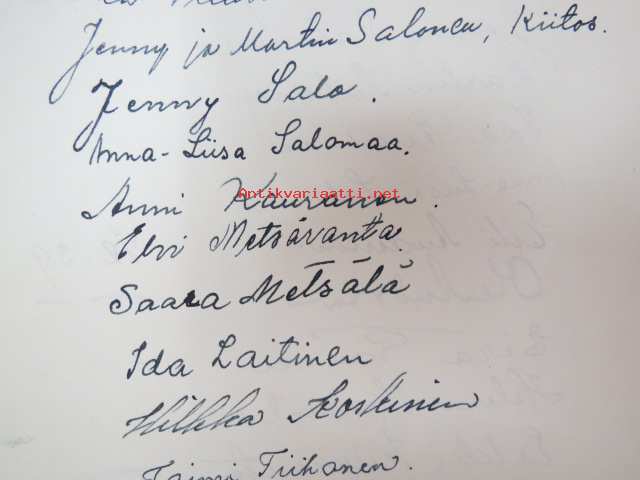 Jenny ja Martin Salonen, Kiitos.
Jenny Salo.
Anna-Liisa Salomaa.
Antikvariaatti.net
Anni
Elvi Metsävanta.
Saara Metsälä
Ida Laitinen
Hilkka Koskinen
Taimi Tiihonen.